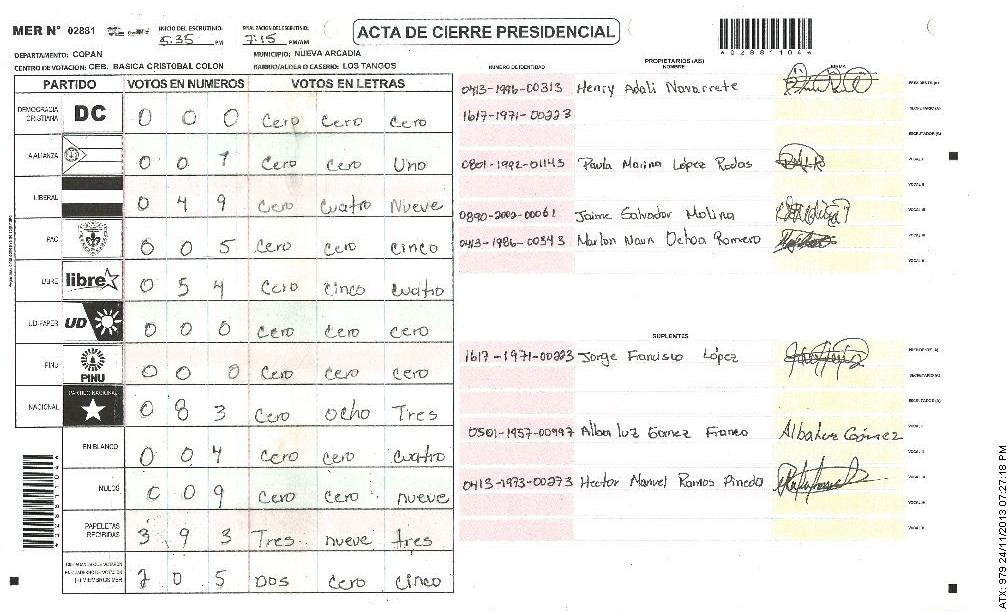 MER N° 02881 INICIO DEL ESCRUTINIO: 5:35 PM FINALIZACION DEL ESCRUTINIO: 7:15 PM/AM
ACTA DE CIERRE PRESIDENCIAL
A028811044
DEPARTAMENTO: COPAN MUNICIPIO: NUEVA ARCADIA
CENTRO DE VOTACION: CEB. BASICA CRISTOBAL COLON BARRIO/ALDEA O CASERIO: LOS TANGOS
PARTIDO VOTOS EN NUMEROS VOTOS EN LETRAS
DEMOCRACIA CRISTIANA DC 0 0 0 Cero Cero Cero
A.ALIANZA 0 0 1 Cero Cero Uno
LIBERAL 0 4 9 Cero Cuatro Nueve
PAC 0 0 5 Cero Cero Cinco
LIBRE libre 0 5 4 Cero Cinco Cuatro
UD-FAPER UD 0 0 0 Cero Cero Cero
PINU PINU 0 0 0 Cero Cero Cero
NACIONAL PARTIDO NACIONAL 0 8 3 Cero Ocho Tres
EN BLANCO 0 0 4 Cero Cero Cuatro
NULOS 0 0 9 Cero Cero nueve
PAPELETAS RECIBIDAS 3 9 3 Tres nueve tres
CIUDADANOS QUE VOTARON EN CUADERNO DE VOTACION (+) MIEMBROS MER 205 Dos Cero Cinco
NUMERO DE IDENTIDAD PROPIETARIOS (AS) NOMBRE FIRMA
0413-1996-00313 Henry Adali Navarrete PRESIDENTE (A)
1617-1971-00223 SECRETARIO (A)
ESCRUTADOR (A)
0801-1992-01143 Paula Marina López Rodas VOCAL I
VOCAL II
0890-2002-00061 Jaime Salvador Molina VOCAL III
0413-1986-00343 Marlon Naun Ochoa Romero VOCAL IV
VOCAL V
SUPLENTES
1617-1971-00223 Jorge Francisco López PRESIDENTE (A)
SECRETARIO (A)
ESCRUTADOR (A)
0501-1957-00997 Alba Luz Gomez Franco Alba Luz Gómez VOCAL I
VOCAL II
0413-1973-00273 Hector Manuel Ramos Pineda
VOCAL V
ATX: 979 24/11/2013 07:27:18 PM